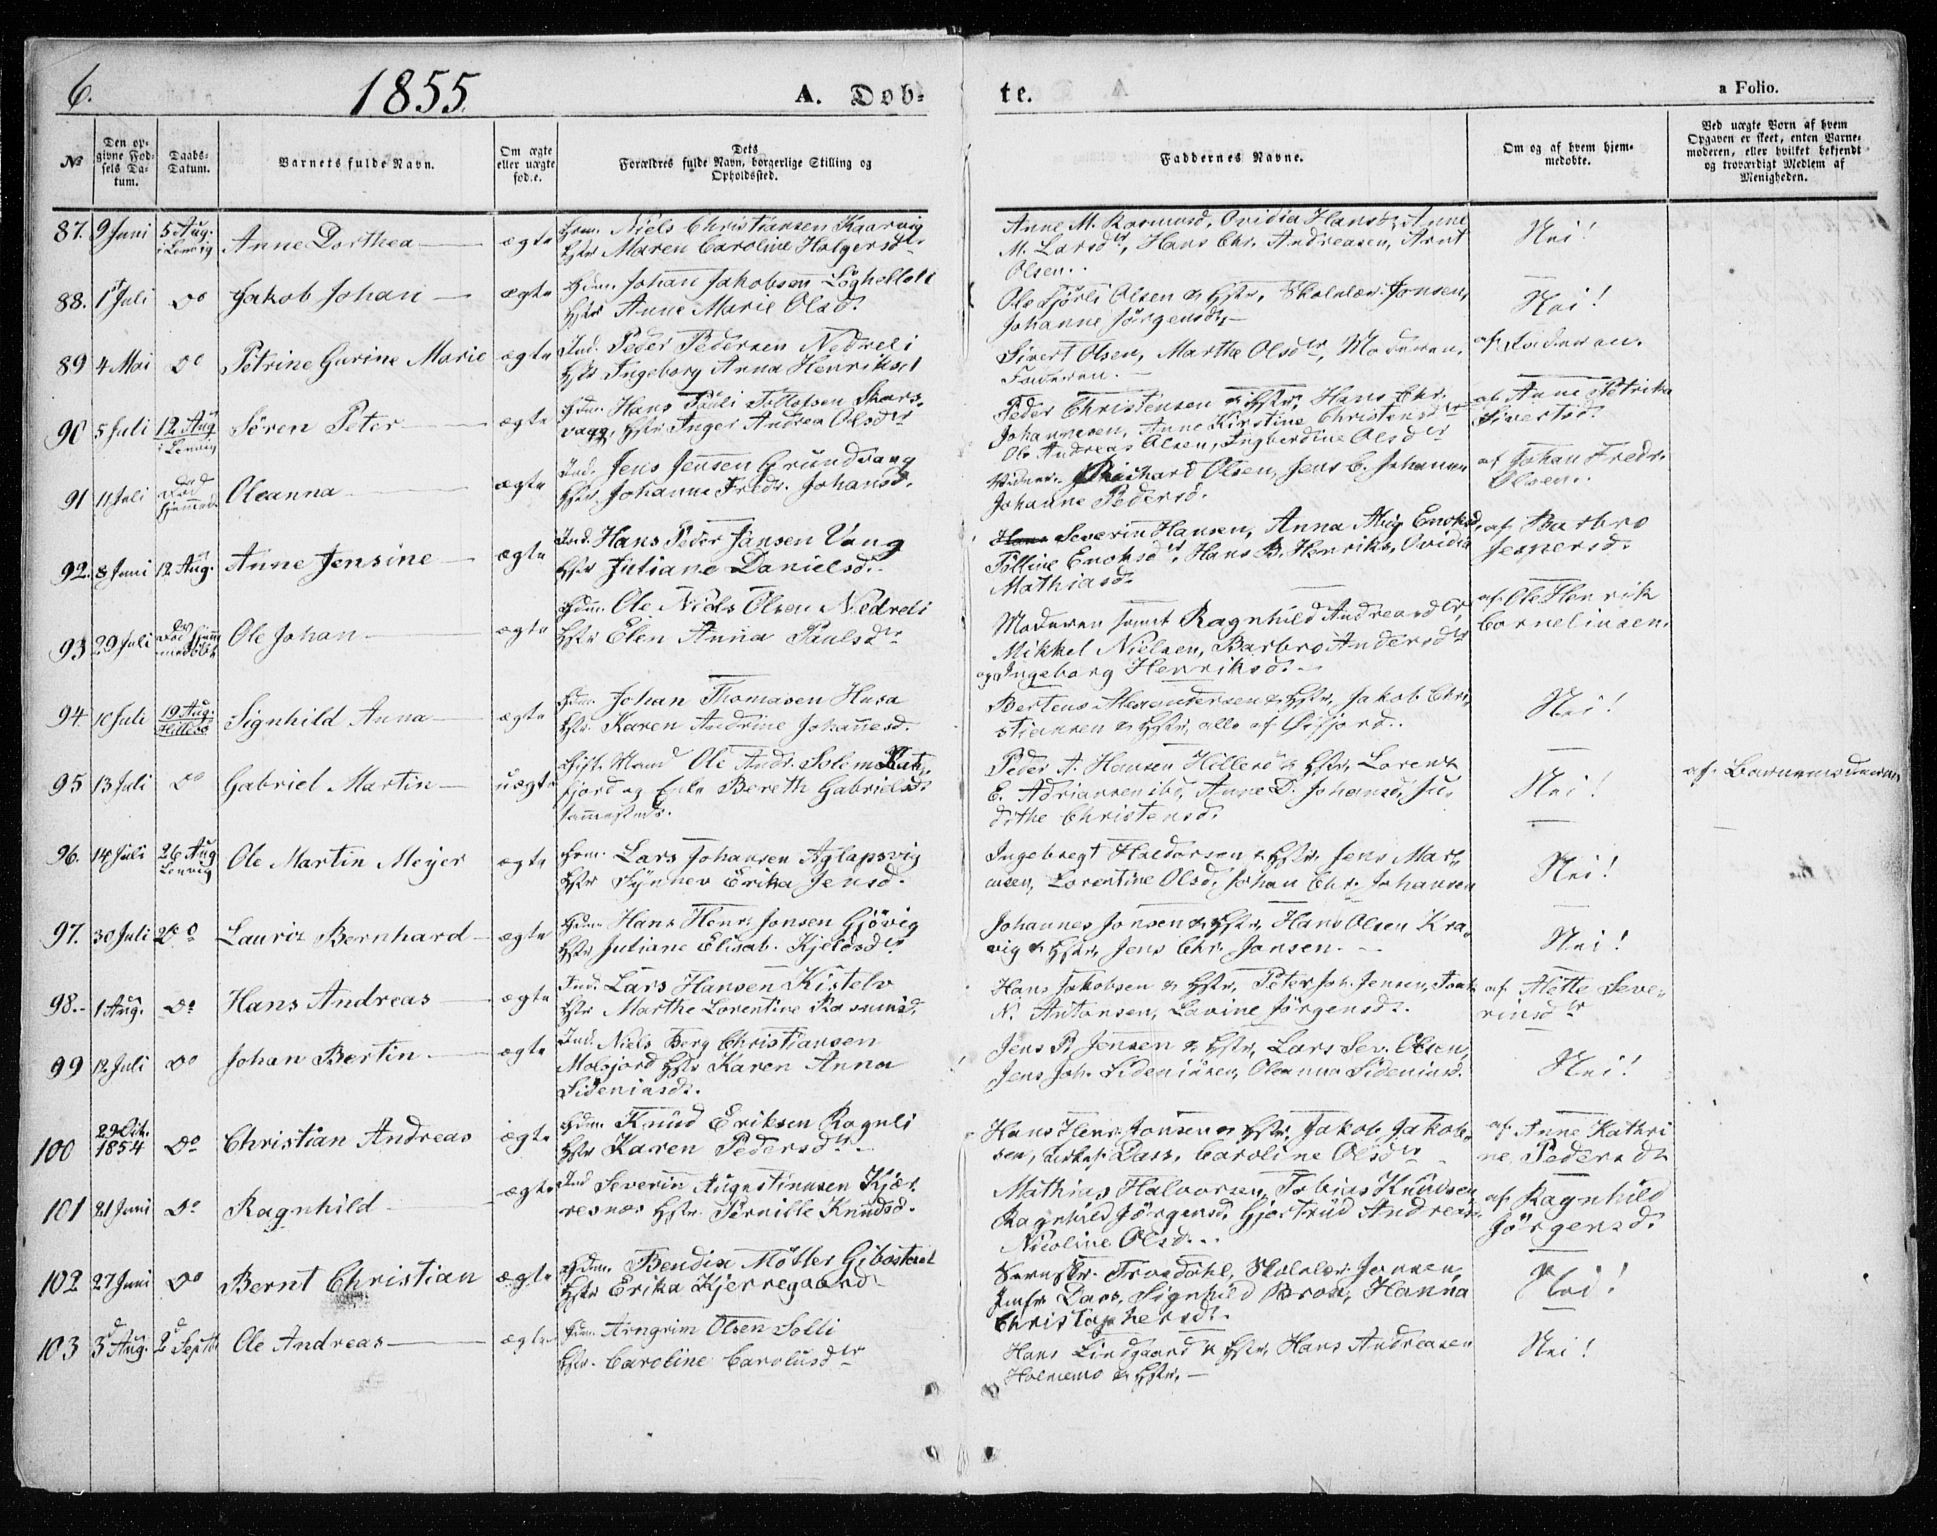 6. 1855. A. Døb-
te. a Folio.
No
Den op-
givne Fød-
sels Da-
tum.
Daabs-
Datum.
Barnets fulde Navn.
Om ægte
eller uægte
fød.e.
Dets
Forældres fulde Navn, borgerlige Stilling og
Opholdssted.
Faddernes Navne.
Om og af hvem hjem-
medøbte.
Ved uægte Børn af hvem
Opgaven er skeet, enten Barne-
moderen, eller hvilket bekjendt
og troværdigt Medlem af
Menigheden.
87. 9 Juni 5 Aug. i Lenvig Anne Dorthea ægte
Niels Christiansen Kaarvig
Hstr Maren Caroline Holgersdtr
Anne M. Rasmusd, Ovidia Hansd, Anne
M. Larsdtr, Hans Chr. Andreasen, Arnt
Olsen.
Nei!
88. 1 Juli Do Jakob Johan ægte
Hdm. Johan Jakobsen
Hstr Anne Marie Olsd.
Ole Olsen & Hstr, Skolelær. Jonsen,
Johanne Jørgensd.
Nei!
89 4 Mai Do Petrine Gurine Marie ægte
Ind. Peder Pedersen Nedreli
Hstr Ingeborg Anna Henriksd
Sivert Olsen, Marthe Olsdtr, Moderen,
Faderen.
af Faderen.
90 5 Juli 12 Aug i Lenvig Søren Peter ægte
Hdm. Hans Pauli Tollefsen Skars-
vaag, Hstr Inger Andrea Olsdtr
Peder Christensen & Hstr, Hans Chr.
Johannesen, Anne Kirstine Christensdtr
Ole Andreas Olsen, Ingberdine Olsdtr
af Anne Petrika
Sivertsd.
91 11 Juli Oleanna ægte
Ind. Jens Jensen Grundvang
Hstr Johanna Fredr. Johansd.
Richard Olsen, Jens C. Johannes
Johanne Pedersd.
af Johan Fredr.
Olsen.
92. 8 Juni 12 Aug. Anne Jensine ægte
Ind. Hans Peder Jansen Vang
Hstr Juliane Danielsd.
Severin Hansen, Anna Enoksd,
Tolline Enoksdtr, Hans B. Henriks, Ovidia
Mathiasd.
af Barbro
Jespersd.
93 29 Juli Ole Johan ægte
Hdm. Ole Niels Olsen Nedreli
Hstr Elen Anna Paulsdtr
Moderen samt Ragnhild Andreasdtr,
Mikkel Nielsen, Barbro Andersdtr
og Ingeborg Henriksd.
af Ole Henrik
Cornelinsen.
94. 10 Juli 19 Aug. Hillesø Signhild Anna ægte
Hdm. Johan Thomasen Husa
Hstr. Karen Andrine Johannesd.
Bertens & Hstr, Jakob Chri-
stiansen & Hstr, alle af Øifjord.
Nei!
95 13 Juli Do Gabriel Martin uægte
Gift Mand Ole Andr.
fjord og Enke Bereth Gabrielsd
sammesteds.
Peder A. Hansen & Hstr, Lorents
E. Adriansen ibd, Anne D. Johansd, Ju-
dithe Christensd.
Nei!
af Barnemoderen
96. 14 Juli 26 Aug Lenvig Ole Martin Meyer ægte
Hdm. Lars Johansen Aglapsvig
Hstr Synnev Erika Jensd.
Ingebregt Haldorsen & Hstr. Jens Mor-
tensen, Lorentine Olsd, Johan Chr. Johansen
Nei!
97. 30 Juli Do Lauriz Bernhard ægte
Hdm. Hans Henr. Jonsen Gjøvig
Hstr Juliane Elisab. Kjeldsdtr
Johannes Jonsen & Hstr, Hans Olsen Kra-
vig & Hstr, Jens Chr. Jansen.
Nei!
98. 1 Aug. Do Hans Andreas ægte
Ind. Lars Hansen Kistelv
Hstr Marthe Lorentine Rasmusd.
Hans Jakobsen & Hstr, Peter Joh. Jensen,
N. Antonsen, Lavine Jørgensd.
af Mette Seve-
rinsdtr
99 12 Juli Do Johan Bertin ægte
Ind. Niels Berg Christiansen
Malsjord Hstr Karen Anna
Sideniusd.
Jens P. Jensen & Hstr, Lars Sev. Olsen,
Jens Joh. Sideniusen, Oleanna Sideniusd.
Nei!
100 29 Okt. 1854 Do Christian Andreas ægte
Hdm. Knud Eriksen Rognli
Hstr Karen Pedersdtr
Hans Henr. Jonsen & Hstr, Jakob Jakob-
sen, Dass, Caroline Olsdtr
af Anne Kathri
ne Pedersdtr
101 21 Juni Do Ragnhild ægte
Ind Severin Augustinusen Kjær-
resnæs Hstr. Pernille Knudsd.
Mathias Halvorsen, Tobias Knudsen,
Ragnhild Jørgensd, Gjertrud Andreas.
Nicoline Olsd.
af Ragnhild
Jørgensd.
102 27 Juni Do Bernt Christian ægte
Hdm. Bendix Møller Gibostad
Hstr Erika Kjerregaard
Trondahl, Skolelær. Jonsen,
Jmfr. Dass, Signhild Hanna
Christophersd.
Nei!
103 3 Aug. 2 Septb Ole Andreas ægte
Hdm. Arngrim Olsen Solli
Hstr. Caroline Carolusdtr
Hans Lindgaard & Hstr, Hans Andreasen
Holmemo & Hstr,
Nei!